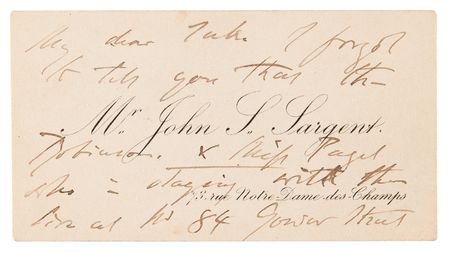 My dear Luke I forgot
to tell you that the
Mr. John S. Sargent.
Robinsons & Miss Paget
who is staying with them
73, rue Notre-Dame-des-Champs
live at No 84 Gower Street